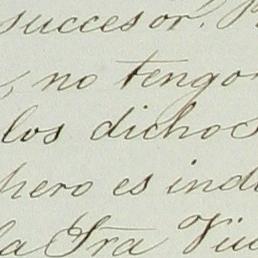 succesor.
no tengo
los dichos
hero es ind
la Sra Viu